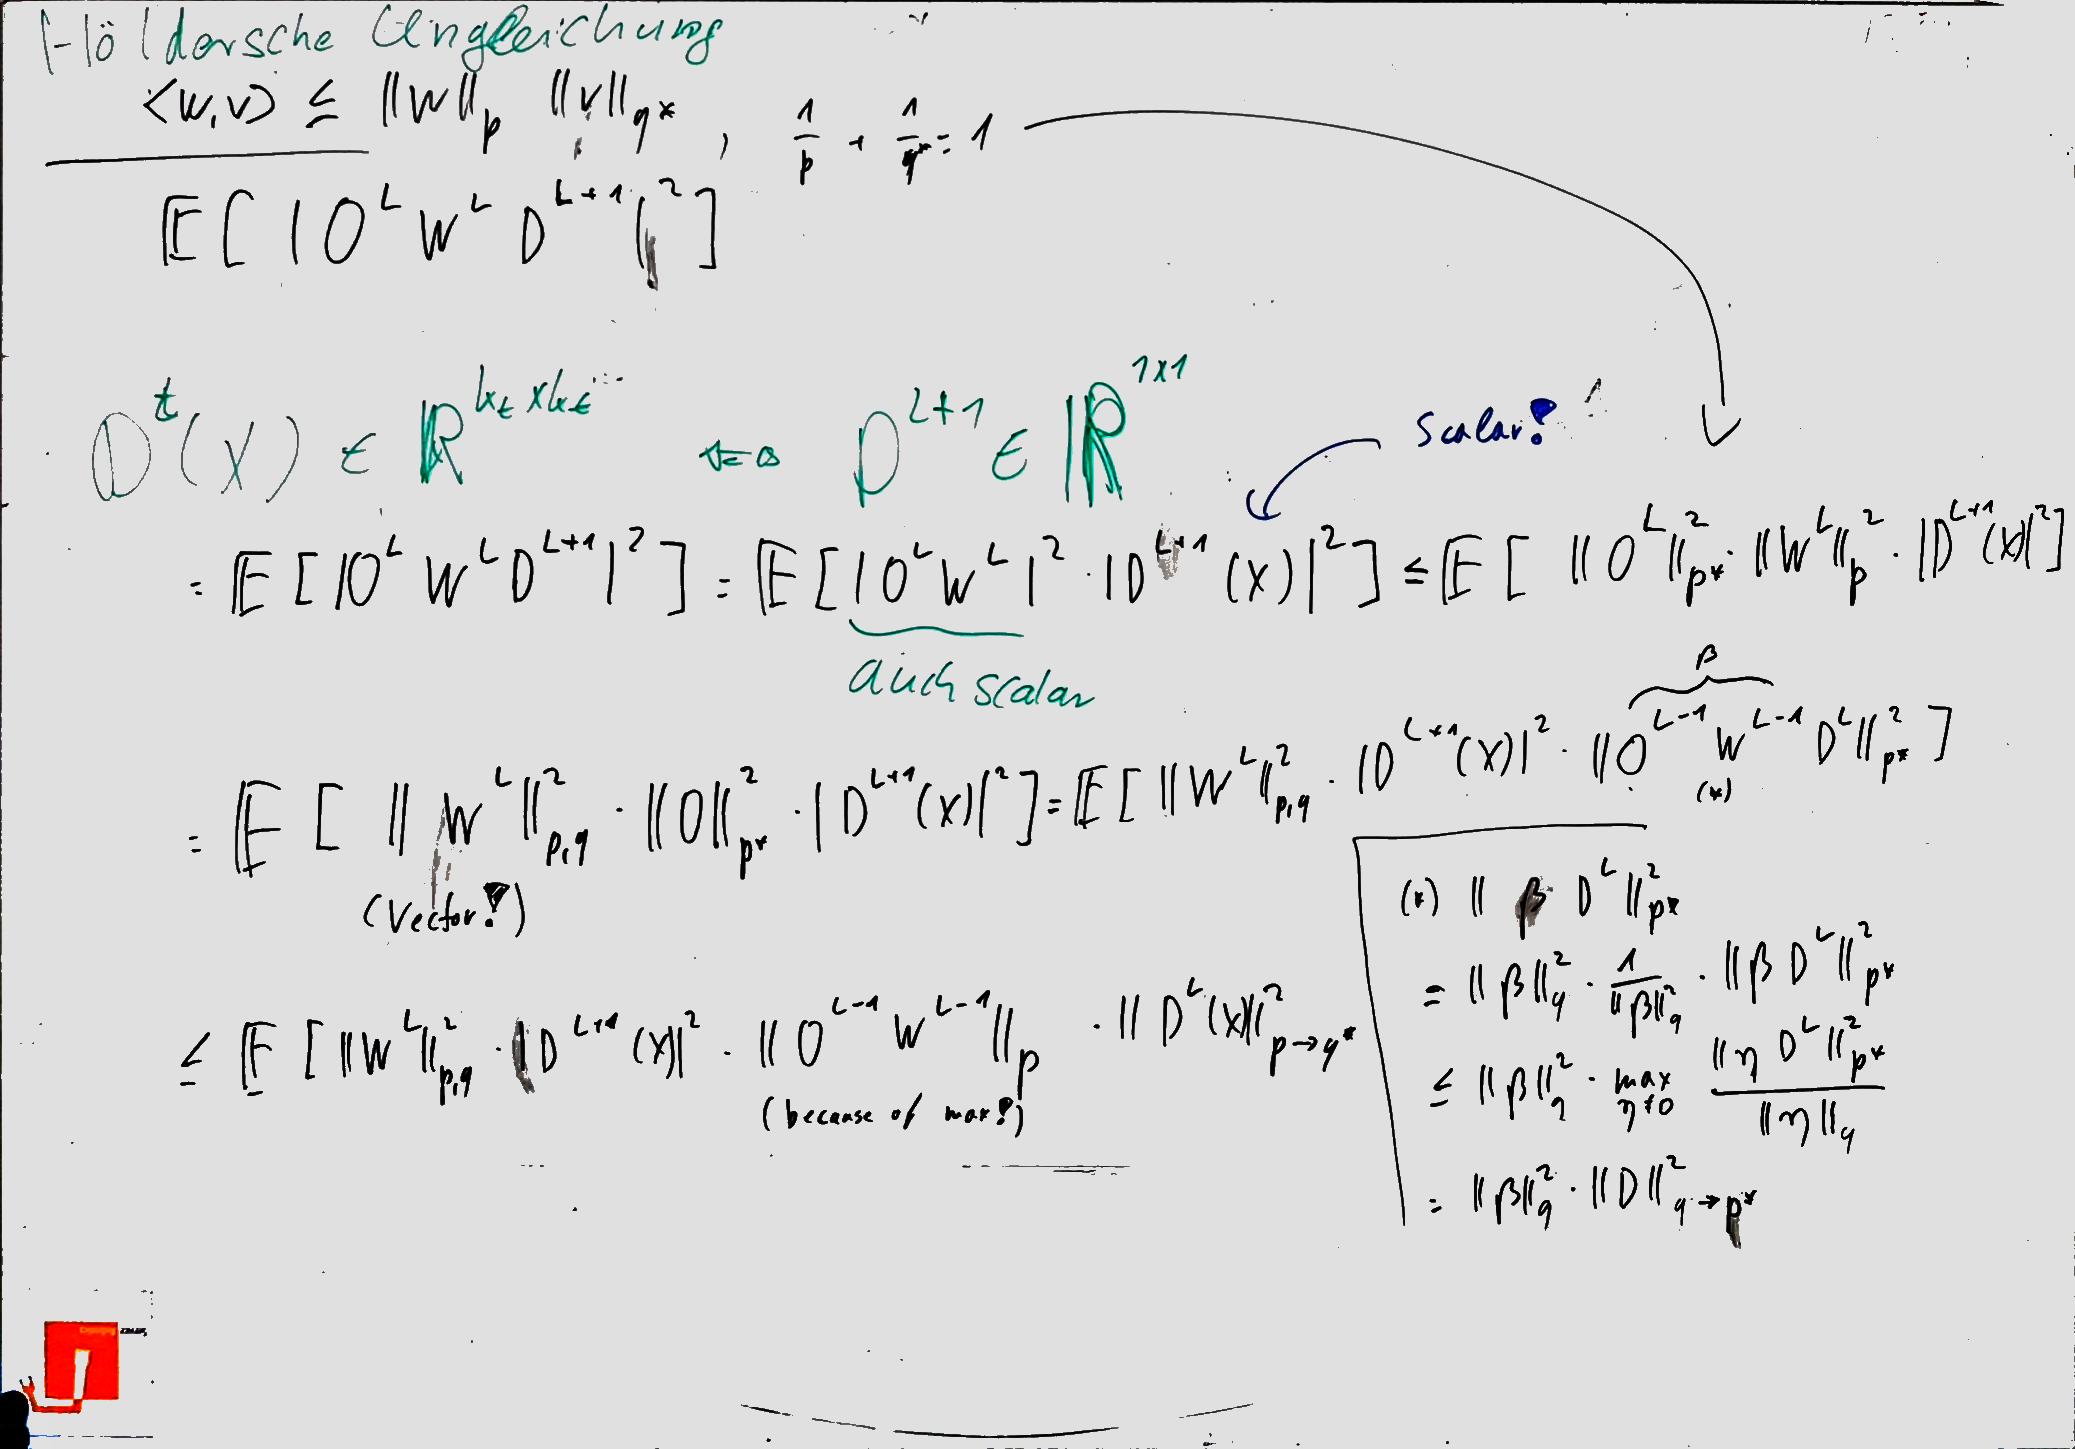 Höldersche Ungleichung
<w,v> ≤ ||W||_p ||v||_q* , 1/p + 1/q* = 1
E[ |O^L W^L D^{L+1}|^2 ]
D^t(X) ∈ R^{k_t x k_t} D^{L+1} ∈ R^{1x1}
Scalar!
= E[ |O^L W^L D^{L+1}|^2 ] = E[ |O^L W^L|^2 · |D^{L+1}(X)|^2 ] ≤ E[ ||O^L||^2_{p*} · ||W^L||^2_p · |D^{L+1}(X)|^2 ]
auch scalar
β
= E[ ||W^L||^2_{p,q} · ||O||^2_{p*} · |D^{L+1}(X)|^2 ] = E[ ||W^L||^2_{p,q} · |D^{L+1}(X)|^2 · ||O^{L-1} W^{L-1} D^L||^2_{p*} ]
(*)
(Vector!)
≤ E[ ||W^L||^2_{p,q} · |D^{L+1}(X)|^2 · ||O^{L-1} W^{L-1}||_p · ||D^L(X)||^2_{p→q*}
(because of max!)
(*) || β D^L ||^2_{p*}
= ||β||^2_q · 1/||β||^2_q · ||β D^L||^2_{p*}
≤ ||β||^2_q · max_{η≠0} ||η D^L||^2_{p*} / ||η||_q
= ||β||^2_q · ||D||^2_{q→p*}